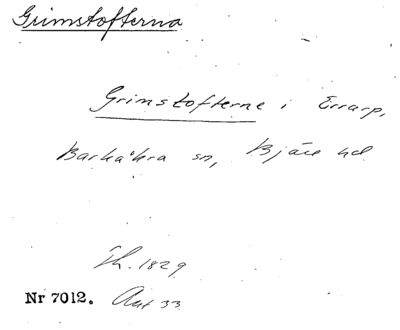 Grimstofterna
Grimstofterne i Errarp,
Barkåkra sn, Bjäre hd
Sk. 1829
Nr 7012. Akt 33